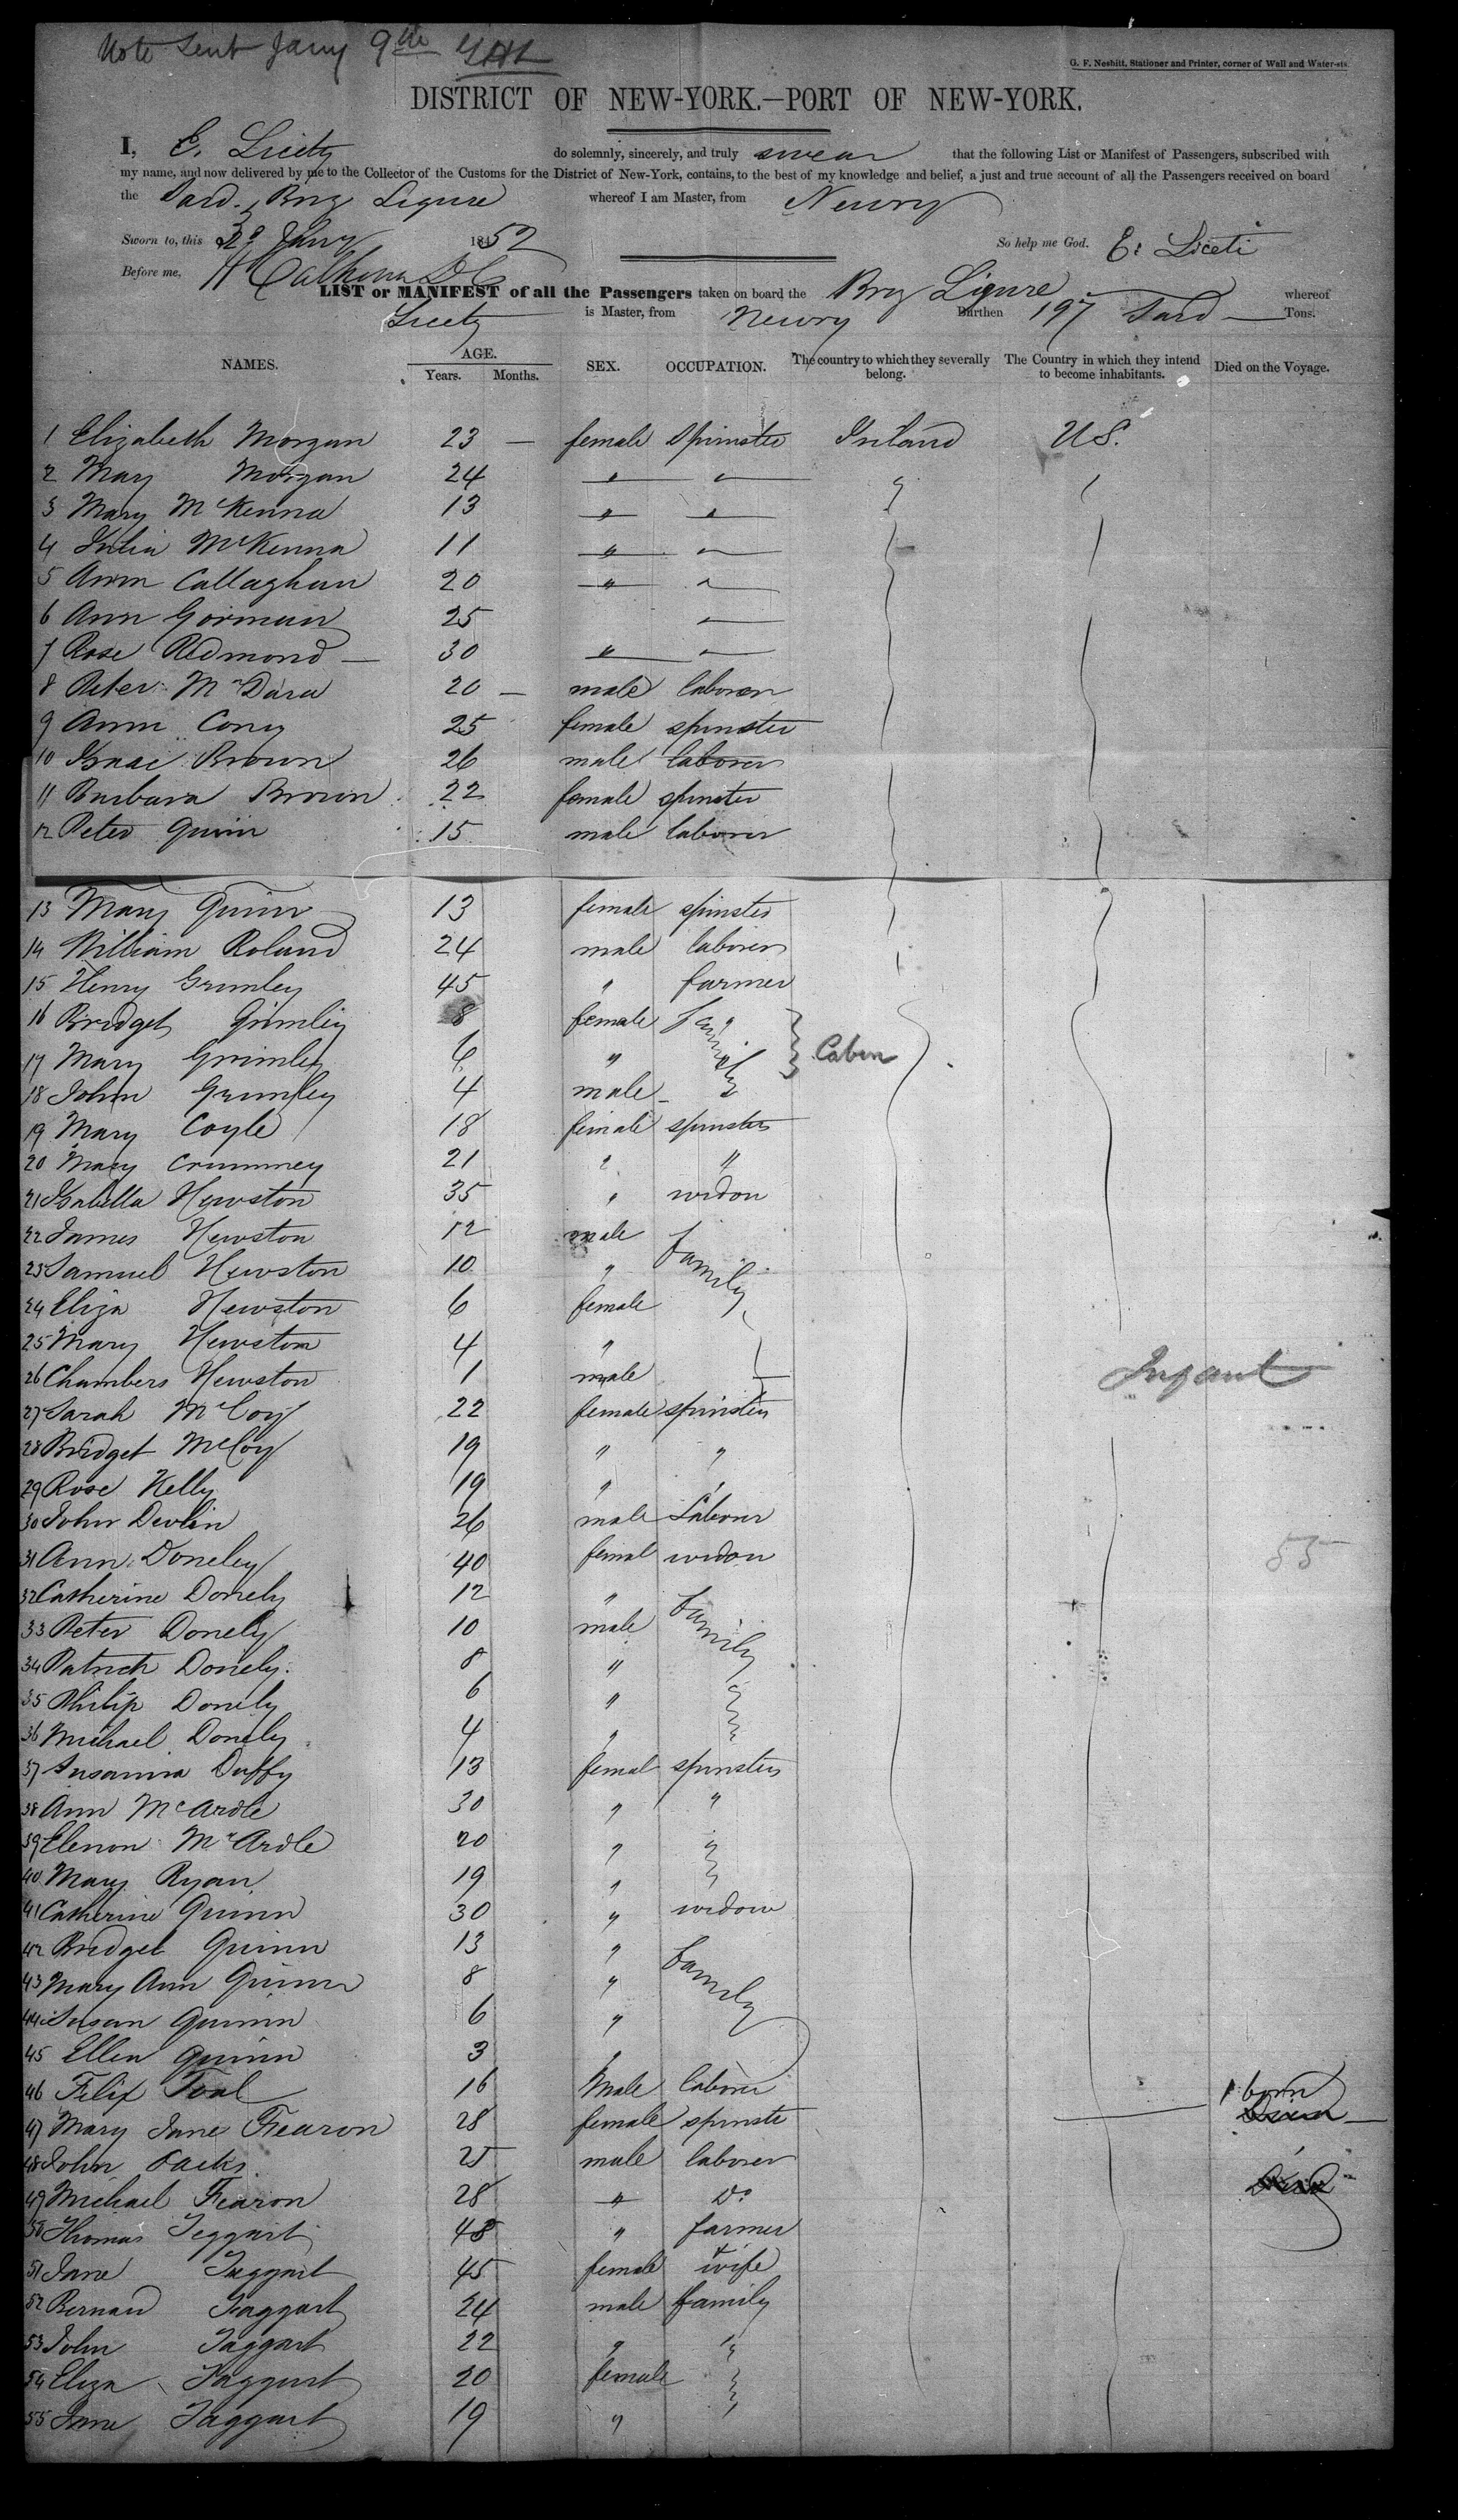 Note Sent Jany 9th
G. F. Nesbitt, Stationer and Printer, corner of Wall and Water-sts.
DISTRICT OF NEW-YORK.—PORT OF NEW-YORK.
I, E. Licety do solemnly, sincerely, and truly swear that the following List or Manifest of Passengers, subscribed with
my name, and now delivered by me to the Collector of the Customs for the District of New-York, contains, to the best of my knowledge and belief, a just and true account of all the Passengers received on board
the Sard. Brig Ligure whereof I am Master, from Newry
Sworn to, this Jany 1852 So help me God. E. Liceti
Before me, H Calhoun D C
LIST or MANIFEST of all the Passengers taken on board the Brig Ligure whereof
Licety is Master, from Newry Burthen 197 Sard Tons.
NAMES. AGE. SEX. OCCUPATION. The country to which they severally belong. The Country in which they intend to become inhabitants. Died on the Voyage.
Years. Months.
1 Elizabeth Morgan 23 — female Spinster Ireland US.
2 Mary Morgan 24 " "
3 Mary McKenna 13 " "
4 Julia McKenna 11 " "
5 Ann Callaghan 20 " "
6 Ann Gorman 25 "
7 Rose Redmond — 30 " "
8 Peter McDara 20 — male laborer
9 Ann Cony 25 female spinster
10 Isaac Brown 26 male laborer
11 Barbara Brown 22 female spinster
12 Peter Quinn 15 male laborer
13 Mary Quinn 13 female spinster
14 William Roland 24 male laborer
15 Henry Grimley 45 " farmer
16 Bridget Grimley 8 female family
17 Mary Grimley 6 " Cabin
18 John Grimley 4 male
19 Mary Coyle 18 female spinster
20 Mary Crummey 21 " "
21 Isabella Hewston 35 " widow
22 James Hewston 12 male
23 Samuel Hewston 10 " family
24 Eliza Hewston 6 female
25 Mary Hewston 4 "
26 Chambers Hewston 1 male Infant
27 Sarah McCoy 22 female spinster
28 Bridget McCoy 19 " "
29 Rose Kelly 19 " "
30 John Devlin 26 male Labour
31 Ann Doneley 40 femal widow 55
32 Catherine Donely 12 "
33 Peter Donely 10 male family
34 Patrick Donely 8 "
35 Philip Donely 6 "
36 Michael Donely 4 "
37 Susanna Duffy 13 femal spinster
38 Ann McArdle 30 " "
39 Elenor McArdle 20 " "
40 Mary Ryan 19 " "
41 Catherine Quinn 30 " widow
42 Bridget Quinn 13 "
43 Mary Ann Quinn 8 " family
44 Susan Quinn 6 "
45 Ellen Quinn 3 "
46 Felix Toal 16 Male laborer 1 born
47 Mary Jane Fearon 28 female spinste
48 John 25 male laborer
49 Michael Fearon 28 " Do
50 Thomas Teggart 48 " farmer
51 Jane Taggart 45 female wife
52 Bernard Taggart 24 male family
53 John Taggart 22 " "
54 Eliza Taggart 20 female "
55 Jane Taggart 19 " "